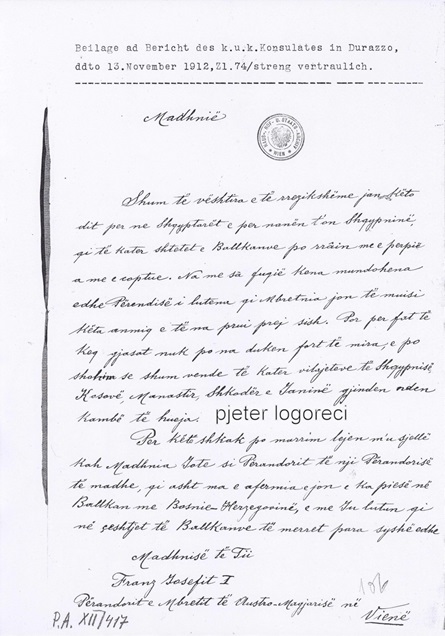 Beilage ad Bericht des k.u.k.Konsulates in Durazzo,
ddto 13.November 1912,Zl.74/streng vertraulich.
Madhnië
HAUS- HOF- U. STAATS-ARCHIV WIEN
Shum të vështira e të rrezikshëme jan këto
dit per ne Shqyptarët e per nanën t'on Shqypninë,
qi të kater shtetet e Ballkanve po rrâin me e perpië
a me e coptue. Na me sa fuqië kena mundohena
edhe Përendisë i lutena qi Mbretnia jon të muisi
këta anmiq e të na prui prej sish. Por per fat të
keq gjasat nuk po na duken fort të mira, e po
shohim se shum vende të kater vilajeteve të Shqypnisë
Kosovë, Manastir, Shkodër e Janinë gjinden nden
kambë të hueja.
pjeter logoreci
Per këtë shkak po marrim lejen m'u sjellë
kah Madhnia Jote si Perandorit të nji Përandorisë
të madhe, qi asht ma e afermia e jon e ka pjesë në
Ballkan me Bosnie-Herzegovinë, e me Ju lutun qi
në çeshtjet të Ballkanve të merret para syshë edhe
Madhnisë të Tij
Franz Josefit I
Përandorit e Mbretit të Austro-Magjarisë në
Vienë
106
P.A. XII/417